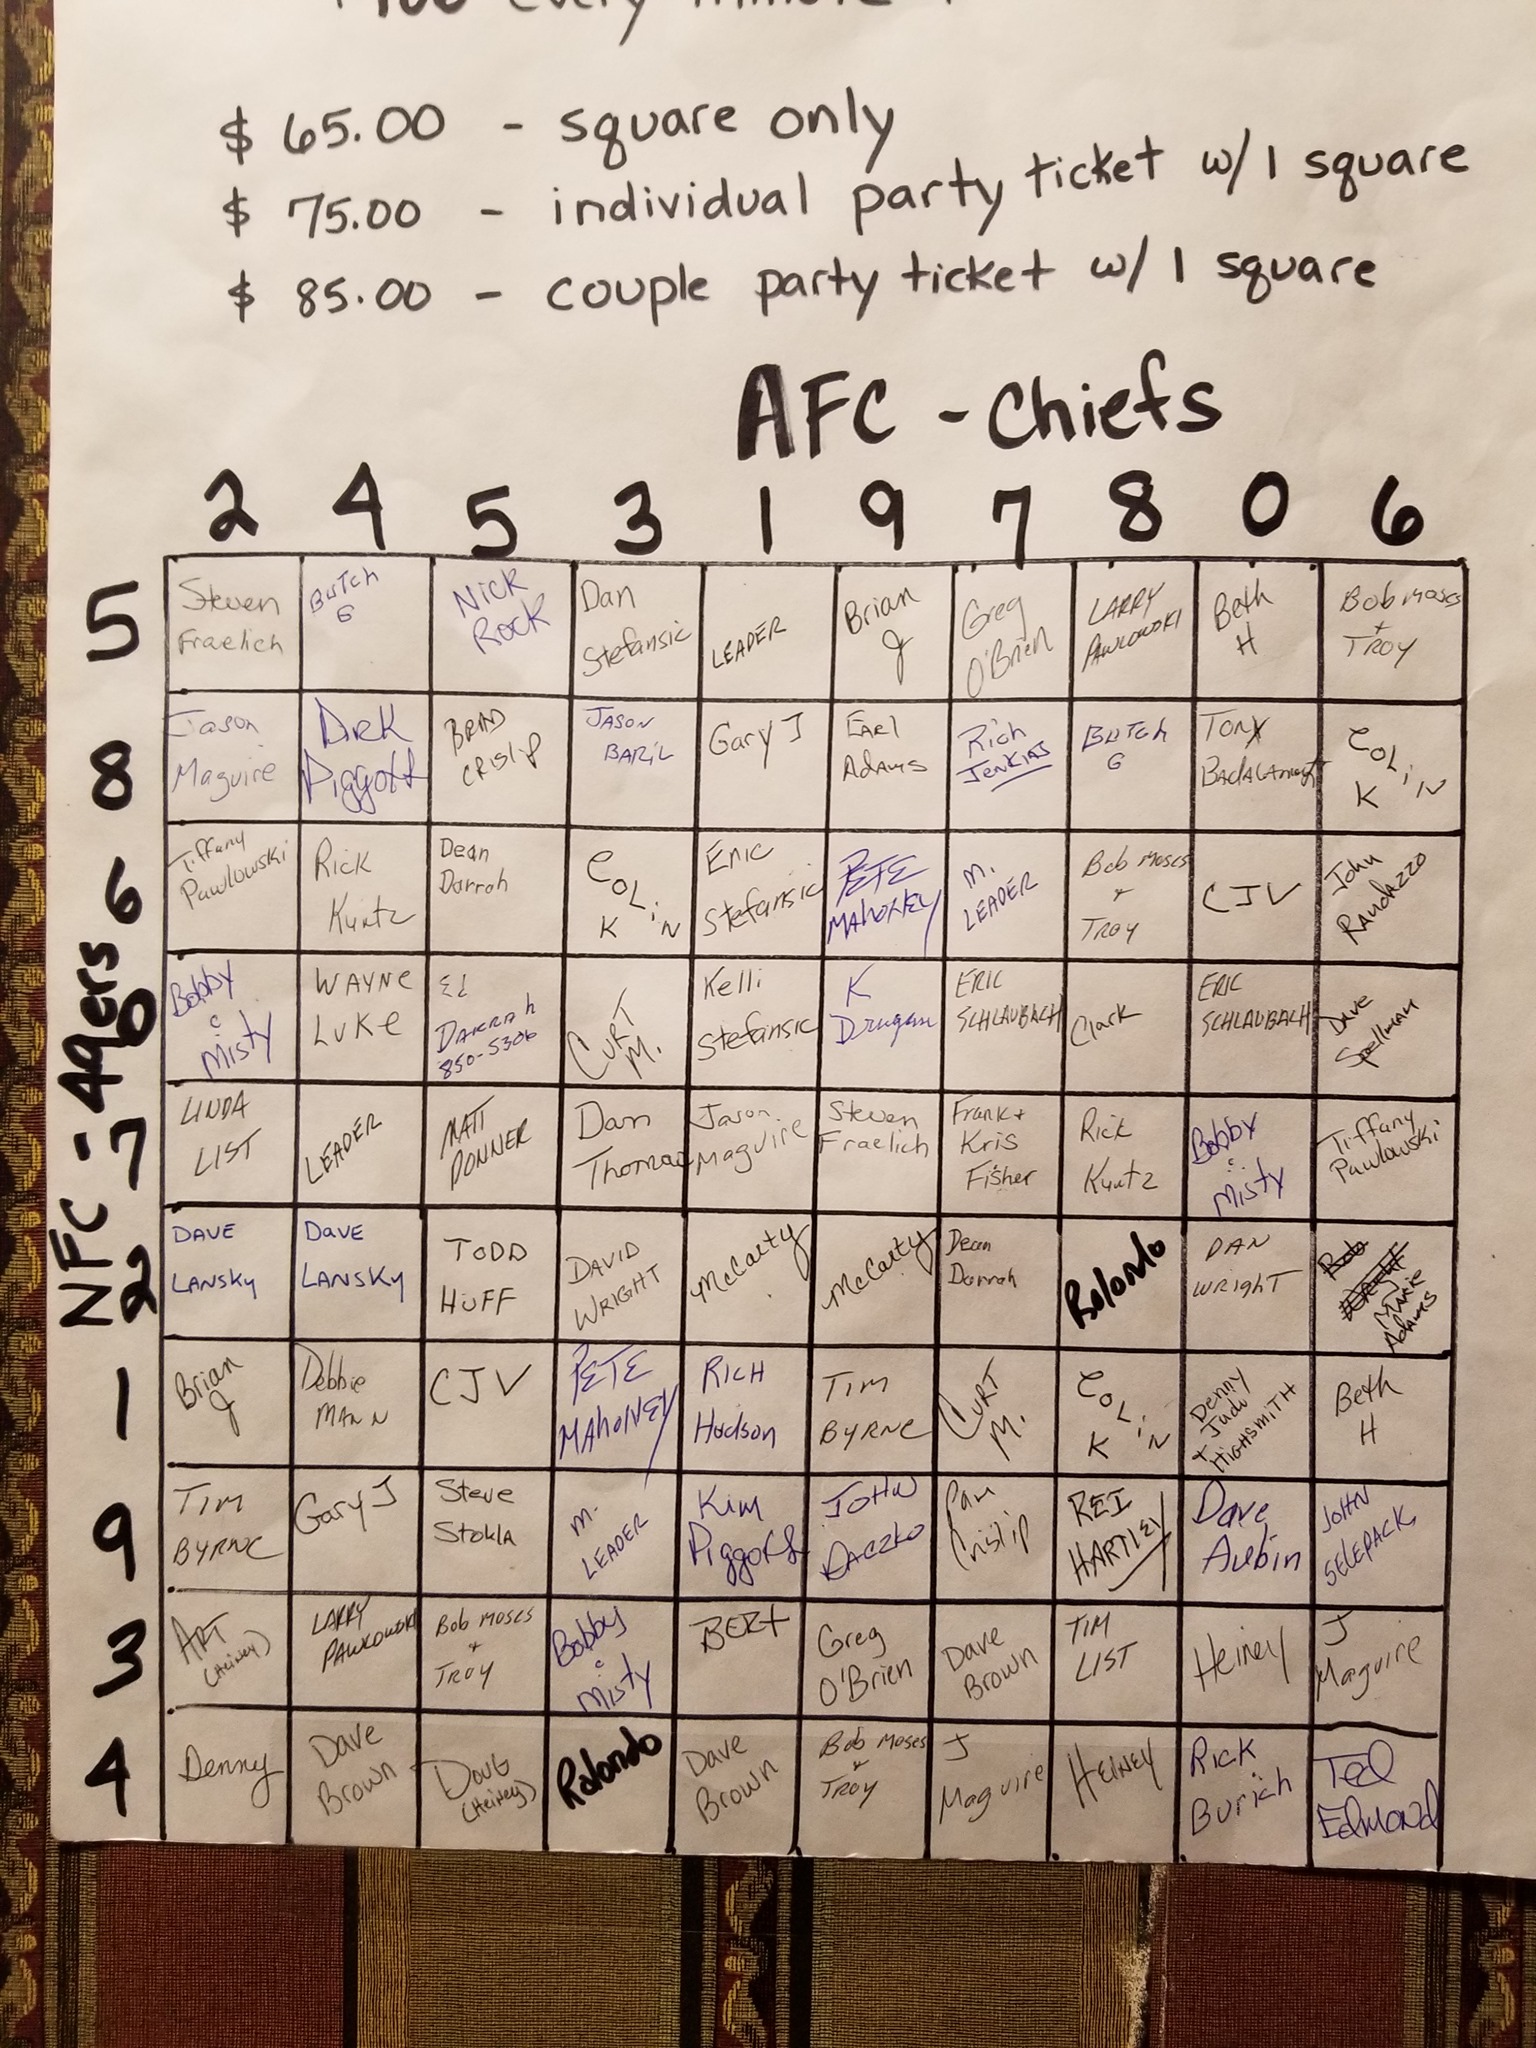 every minute
$ 65.00 - square only
$ 75.00 - individual party ticket w/ 1 square
$ 85.00 - couple party ticket w/ 1 square
AFC - Chiefs
2 4 5 3 1 9 7 8 0 6
NFC - 49ers
5 Steven Fraelich BUTCH G NICK ROCK Dan Stefansic LEADER Brian J Greg O'Brien LARRY PAWLOWSKI Beth H Bob Moses + TROY
8 Jason Maguire Piggott BRAD CRISLIP JASON BARIL Gary J EARL Adams Rich JENKINS BUTCH G TONY COLIN K
6 Tiffany Pawlowski Rick Kuntz Dean Darrah COLIN K Eric Stefansic PETE MAHONEY M. LEADER Bob Moses + TROY CJV John RANDAZZO
0 Bobby & Misty WAYNE LUKE DARRAH 850-5306 CURT M. Kelli Stefansic K Drugan ERIC SCHLAUBACH Clark ERIC SCHLAUBACH DAVE Spellman
7 LINDA LIST LEADER MATT DONNER Dan Thomas Jason Maguire Steven Fraelich Frank + Kris Fisher Rick Kuntz Bobby & Misty Tiffany Pawlowski
2 DAVE LANSKY DAVE LANSKY TODD HUFF DAVID WRIGHT McCarty McCarty Dean Darrah Rolondo DAN WRIGHT MARIE Adams
1 Brian J Debbie MANN CJV PETE MAHONEY RICH Hudson TIM BYRNE CURT M. COLIN K Denny + Judy HIGHSMITH Beth H
9 TIM BYRNE Gary J Steve Stokla M. LEADER Kim Piggott JOHN DACZKO Pam Crislip REI HARTLEY Dave Aubin JOHN SELEPACK
3 ART (Heiney) LARRY PAWLOWSKI Bob Moses + TROY Bobby & Misty BERT Greg O'Brien Dave Brown TIM LIST Heiney J Maguire
4 Denny Dave Brown DOUG (Heiney) Rolondo Dave Brown Bob Moses + TROY J Maguire HEINEY RICK Burich Ted Edmond